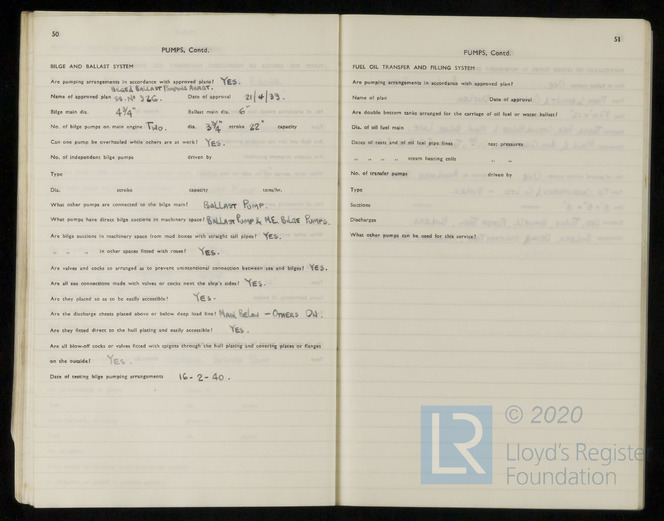 50
PUMPS, Contd.
BILGE AND BALLAST SYSTEM
Are pumping arrangements in accordance with approved plans? YES.
BILGE & BALLAST PUMPING ARRGT.
Name of approved plan SS. No 326. Date of approval 21/4/39.
Bilge main dia. 4¾" Ballast main dia. 6"
No. of bilge pumps on main engine TWO. dia. 3¾" stroke 22" capacity
Can one pump be overhauled while others are at work? YES.
No. of independent bilge pumps driven by
Type
Dia. stroke capacity tons/hr.
What other pumps are connected to the bilge main? BALLAST PUMP.
What pumps have direct bilge suctions in machinery space? BALLAST PUMP & M.E. BILGE PUMPS.
Are bilge suctions in machinery space from mud boxes with straight tail pipes? YES.
" " " in other spaces fitted with roses? YES.
Are valves and cocks so arranged as to prevent unintentional connection between sea and bilges? YES.
Are all sea connections made with valves or cocks next the ship's sides? YES.
Are they placed so as to be easily accessible? YES.
Are the discharge chests placed above or below deep load line? MAIN BELOW - OTHERS ON.
Are they fitted direct to the hull plating and easily accessible? YES.
Are all blow-off cocks or valves fitted with spigots through the hull plating and covering plates or flanges
on the outside? YES.
Date of testing bilge pumping arrangements 16-2-40.
51
PUMPS, Contd.
FUEL OIL TRANSFER AND FILLING SYSTEM
Are pumping arrangements in accordance with approved plan?
Name of plan Date of approval
Are double bottom tanks arranged for the carriage of oil fuel or water ballast?
Dia. of oil fuel main
Dates of tests and of oil fuel pipe lines test pressures
" " " " steam heating coils " "
No. of transfer pumps driven by
Type
Suctions
Discharges
What other pumps can be used for this service?
LR
© 2020
Lloyd's Register
Foundation